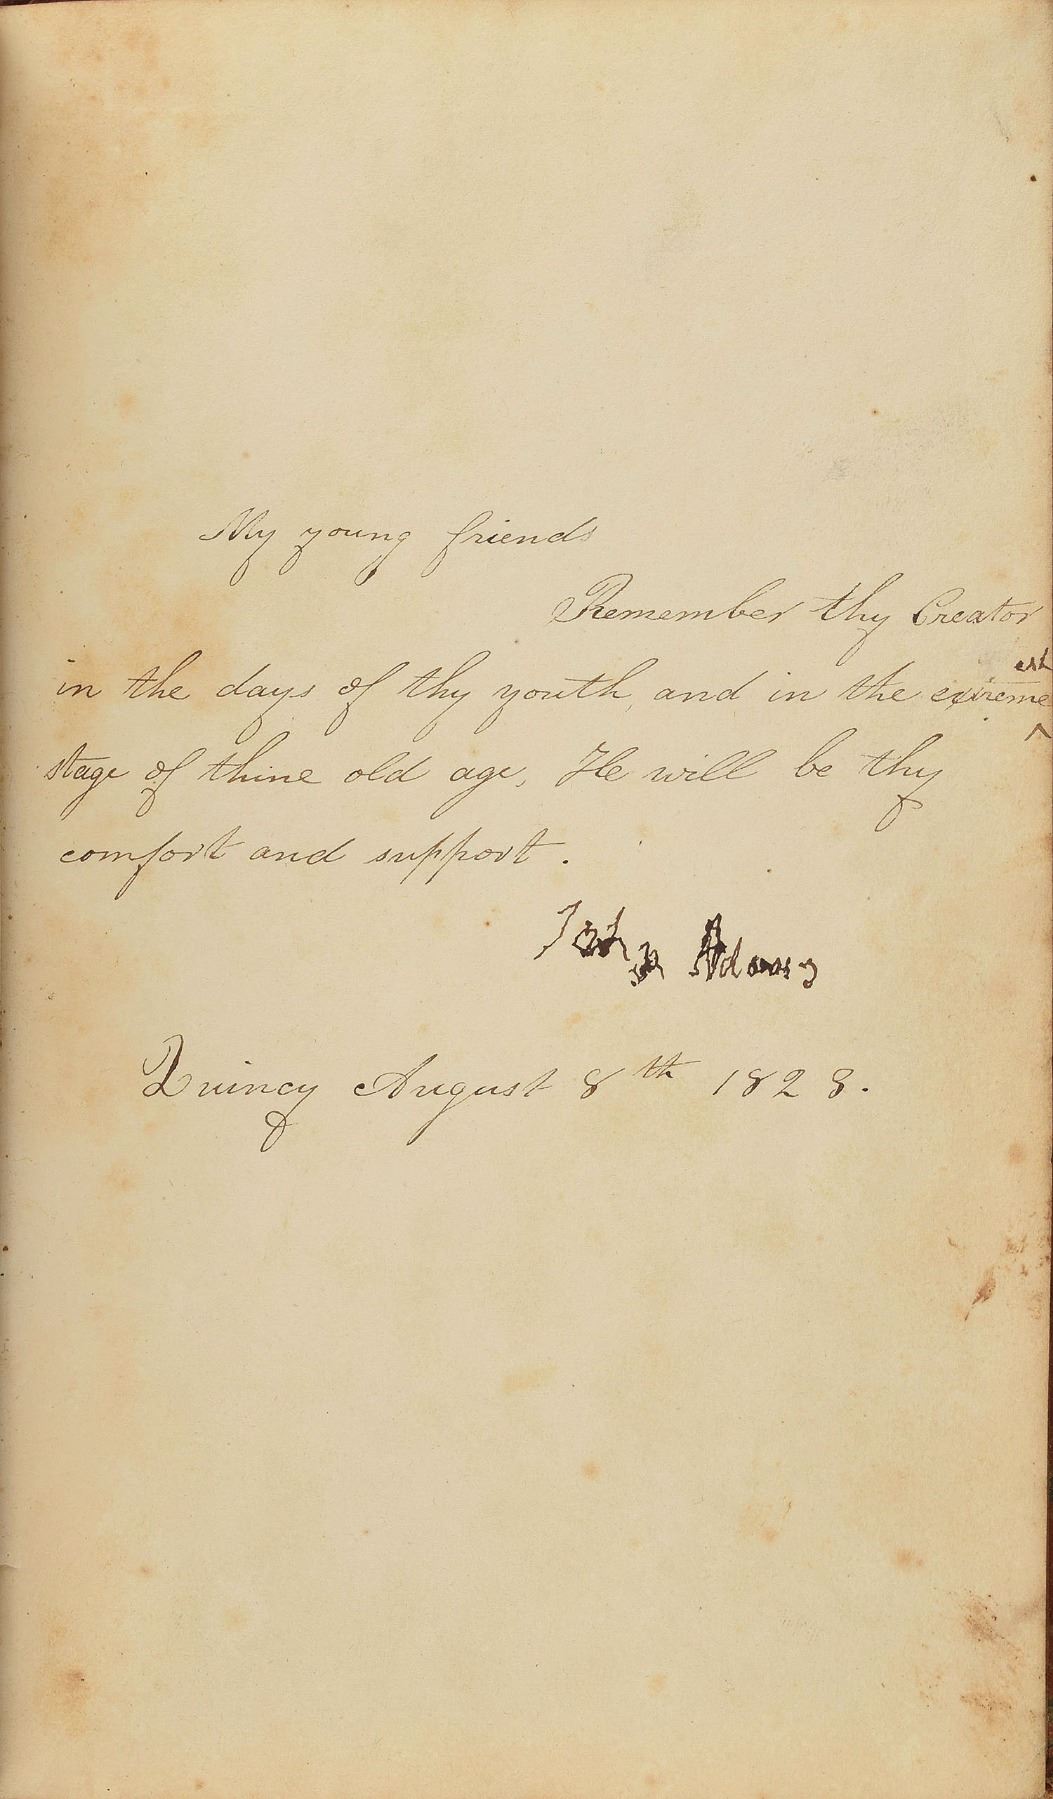 My young friends
Remember thy Creator
in the days of thy youth, and in the extreme est
stage of thine old age, He will be thy
comfort and support.
John Adams
Quincy August 8th 1823.